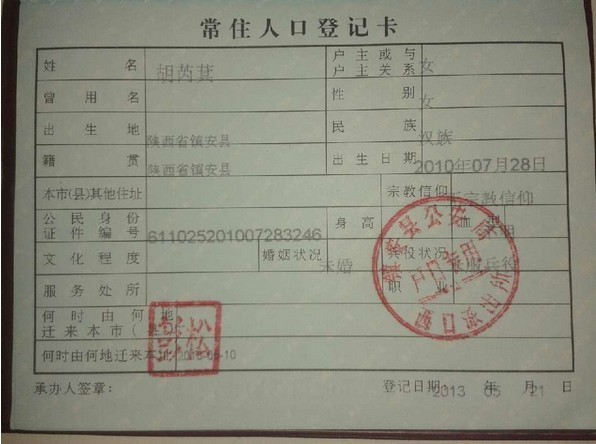 常住人口登记卡
姓名 胡芮萁 户主或与户主关系 女
曾用名 性别 女
出生地 陕西省镇安县 民族 汉族
籍贯 陕西省镇安县 出生日期 2010年07月28日
本市(县)其他住址 宗教信仰 无宗教信仰
公民身份证件编号 611025201007283246 身高 血型
文化程度 婚姻状况 未婚 兵役状况 未服兵役
服务处所 职业
何时由何地迁来本市(县)
何时由何地迁来本址
承办人签章: 登记日期: 2013 年 05 月 21 日